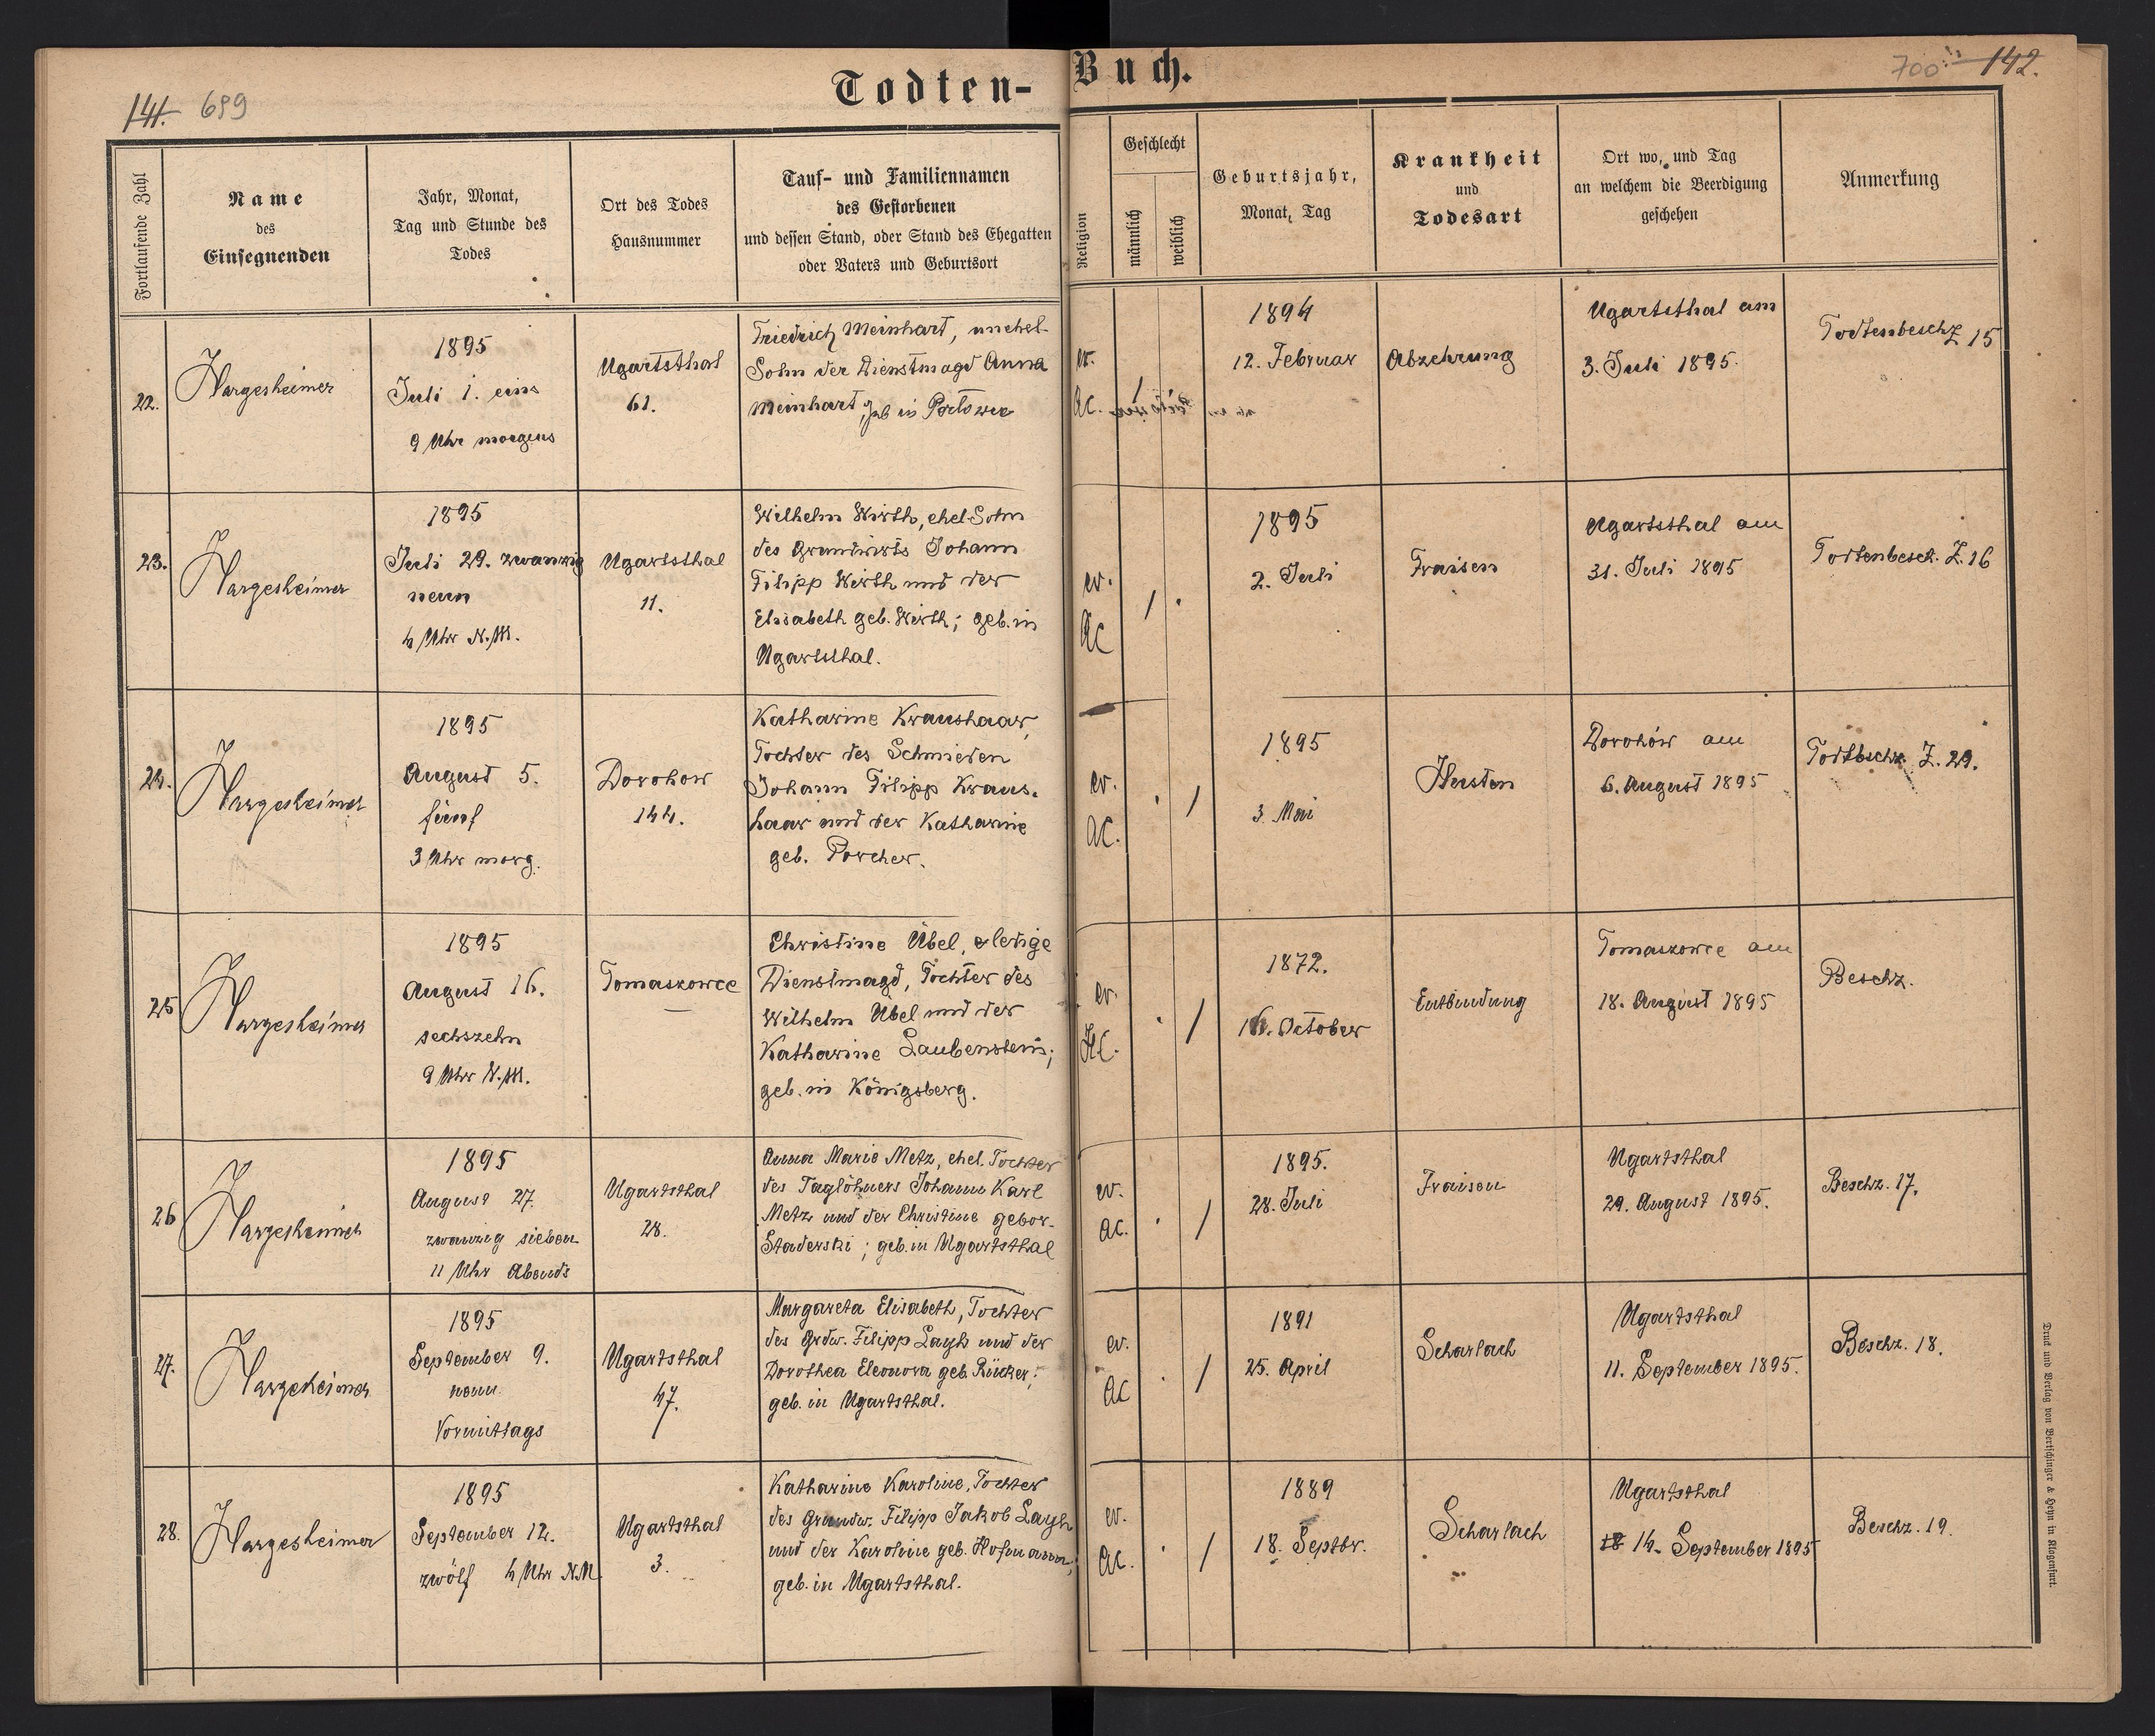 Todten-
Buch.
141. 689
700 142.
Fortlaufende Zahl
Name
des
Einsegnenden
Jahr, Monat,
Tag und Stunde des
Todes
Ort des Todes
Hausnummer
Tauf- und Familiennamen
des Gestorbenen
und dessen Stand, oder Stand des Ehegatten
oder Vaters und Geburtsort
Religion
Geschlecht
männlich
weiblich
Geburtsjahr,
Monat, Tag
Krankheit
und
Todesart
Ort wo, und Tag
an welchem die Beerdigung
geschehen
Anmerkung
22.
Hargesheimer
1895
Juli 1. eins
9 Uhr morgens
Ugartsthal
61.
Friedrich Meinhart, unehel.
Sohn der Dienstmagd Anna
Meinhart, geb in
ev.
AC.
/
1894
12. Februar
Abzehrung
Ugartsthal am
3. Juli 1895.
Todtenbeschz 15
23.
Hargesheimer
1895
Juli 29. zwanzig
neun
4 Uhr N.M.
Ugartsthal
11.
Wilhelm Wirth, ehel. Sohn
des Grundwirts Johann
Filipp Wirth und der
Elisabeth geb. Wirth; geb. in
Ugartsthal.
ev.
AC
/ .
1895
2. Juli
Fraisen
Ugartsthal am
31. Juli 1895
Todtenbesch. Z. 16
24.
Hargesheimer
1895
August 5.
fünf
3 Uhr morg.
Dorohow
144.
Katharine Kraushaar,
Tochter des Schmieden
Johann Filipp Kraus-
haar und der Katharine
geb. Porcher.
ev.
AC.
. /
1895
3. Mai
Husten
Dorohów am
6. August 1895
Todtbschz. Z. 29.
25
Hargesheimer
1895
August 16.
sechszehn
9 Uhr N.M.
Tomaszowce
—
Christine Übel, ledige
Dienstmagd, Tochter des
Wilhelm Übel und der
Katharine Laubenstein;
geb. in Königsberg.
ev.
HC.
. /
1872.
16. October
Entbindung
Tomaszowce am
18. August 1895
Beschz.
26
Hargesheimer
1895
August 27.
zwanzig sieben
11 Uhr Abends
Ugartsthal
28.
Anna Marie Metz, ehel. Tochter
des Taglöhners Johann Karl
Metz und der Christine gebor.
Staderski; geb. in Ugartsthal
ev.
AC.
. /
1895.
28. Juli
Fraisen
Ugartsthal
29. August 1895.
Beschz. 17.
27.
Hargesheimer
1895
September 9.
neun
Vormittags
Ugartsthal
47.
Margareta Elisabeth, Tochter
des Grdw. Filipp Layh und der
Dorothea Eleonora geb. Rücker;
geb. in Ugartsthal.
ev.
AC
. /
1891
25. April
Scharlach
Ugartsthal
11. September 1895.
Beschz. 18.
28.
Hargesheimer
1895
September 12.
zwölf 4 Uhr N.M.
Ugartsthal
3.
Katharine Karoline, Tochter
des Grundw. Filipp Jakob Layh
und der Karoline geb. Hofmann;
geb. in Ugartsthal.
ev.
AC.
. /
1889
18. Septbr.
Scharlach
Ugartsthal
18 14. September 1895
Beschz. 19.
Druck und Verlag von Bertschinger & Heyn in Klagenfurt.